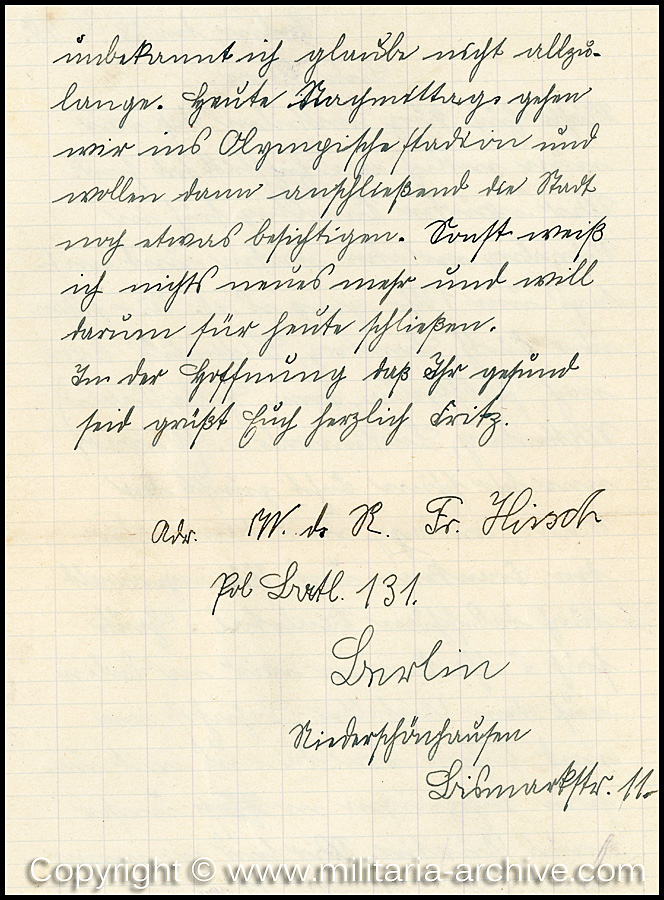 unbekannt ich glaube nicht allzu-
lange. Heute Nachmittag. gehen
wir ins Olympische Stadion und
wollen dann anschließend die Stadt
noch etwas besichtigen. Sonst weiß
ich nichts neues mehr und will
darum für heute schließen.
Im der Hoffnung daß Ihr gesund
seid grüßt Euch herzlich Fritz.
Adr. W. d. R. Fr. Hirsch
Pol Batl. 131.
Berlin
Niederschönhausen
Bismarkstr. 11.
Copyright © www.militaria-archive.com